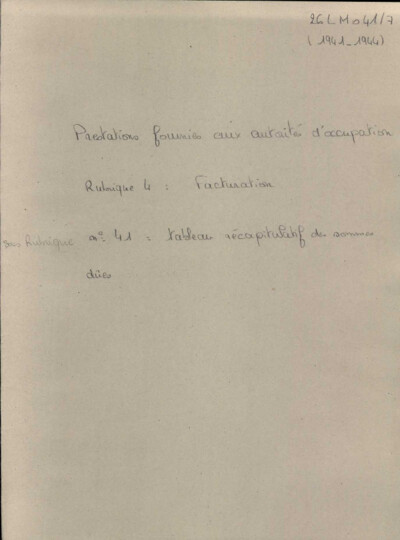 26 LM 041/7
(1941-1944)
Prestations fournies aux autorités d'occupation
Rubrique 4 : Facturation
Sous Rubrique n° 41 : tableau récapitulatif des sommes
dûes